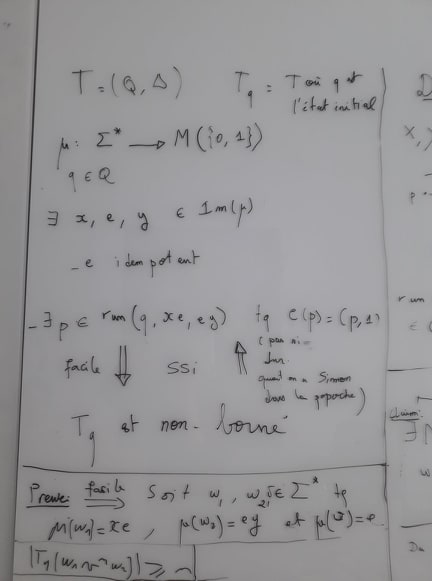 T = (Q, Δ) T_q = T où q est
l'état initial
μ : Σ* → M({0, 1})
q ∈ Q
∃ x, e, y ∈ Im(μ)
- e idempotent
- ∃ p ∈ run(q, xe, ey) tq e(p) = (p, 1)
facile ⇓ ssi ⇑ (pas si
dur
quand on a Simon
dans la popoche)
T_q est non-borné
Preuve: facile ⟹ Soit w₁, w₂, v ∈ Σ* tq
μ(w₁) = xe, μ(w₂) = ey et μ(v) = e
|T_q(w₁ vⁿ w₂)| ⩾ n
D
X,
run